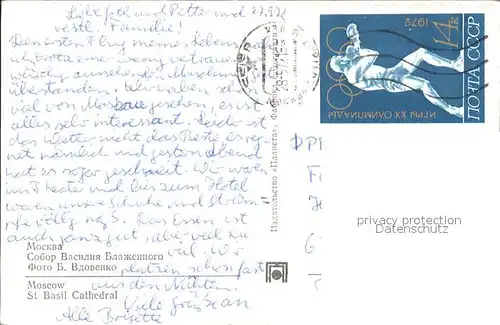 Liebe und Petter und 27.9.72
restl. Familie!
Den ersten Flug meines Lebens
ich trotz eine wenig
überstanden. Wir haben sehr
viel von Moskau gesehen, es ist
alles sehr interessant. Leider ist
das Wetter nicht das Beste es reg
net nämlich und gestern abend
hat es sogar geschneit. Wir waren
im Theater und bis zum Hotel
waren unsere Schuhe und Strüm-
pfe völlig naß. Das Essen ist
auch ganz gut, aber viel zu
viel. Wir
platzen schon fast
aus den Nähten.
Viele
Alle Brigitte
Москва
Собор Василия Блаженного
Фото Б. Вдовенко
Moscow
St Basil Cathedral
Издательство «Планета».
1972
14к
ИГРЫ XX ОЛИМПИАДЫ
ПОЧТА СССР
privacy protection
Datenschutz